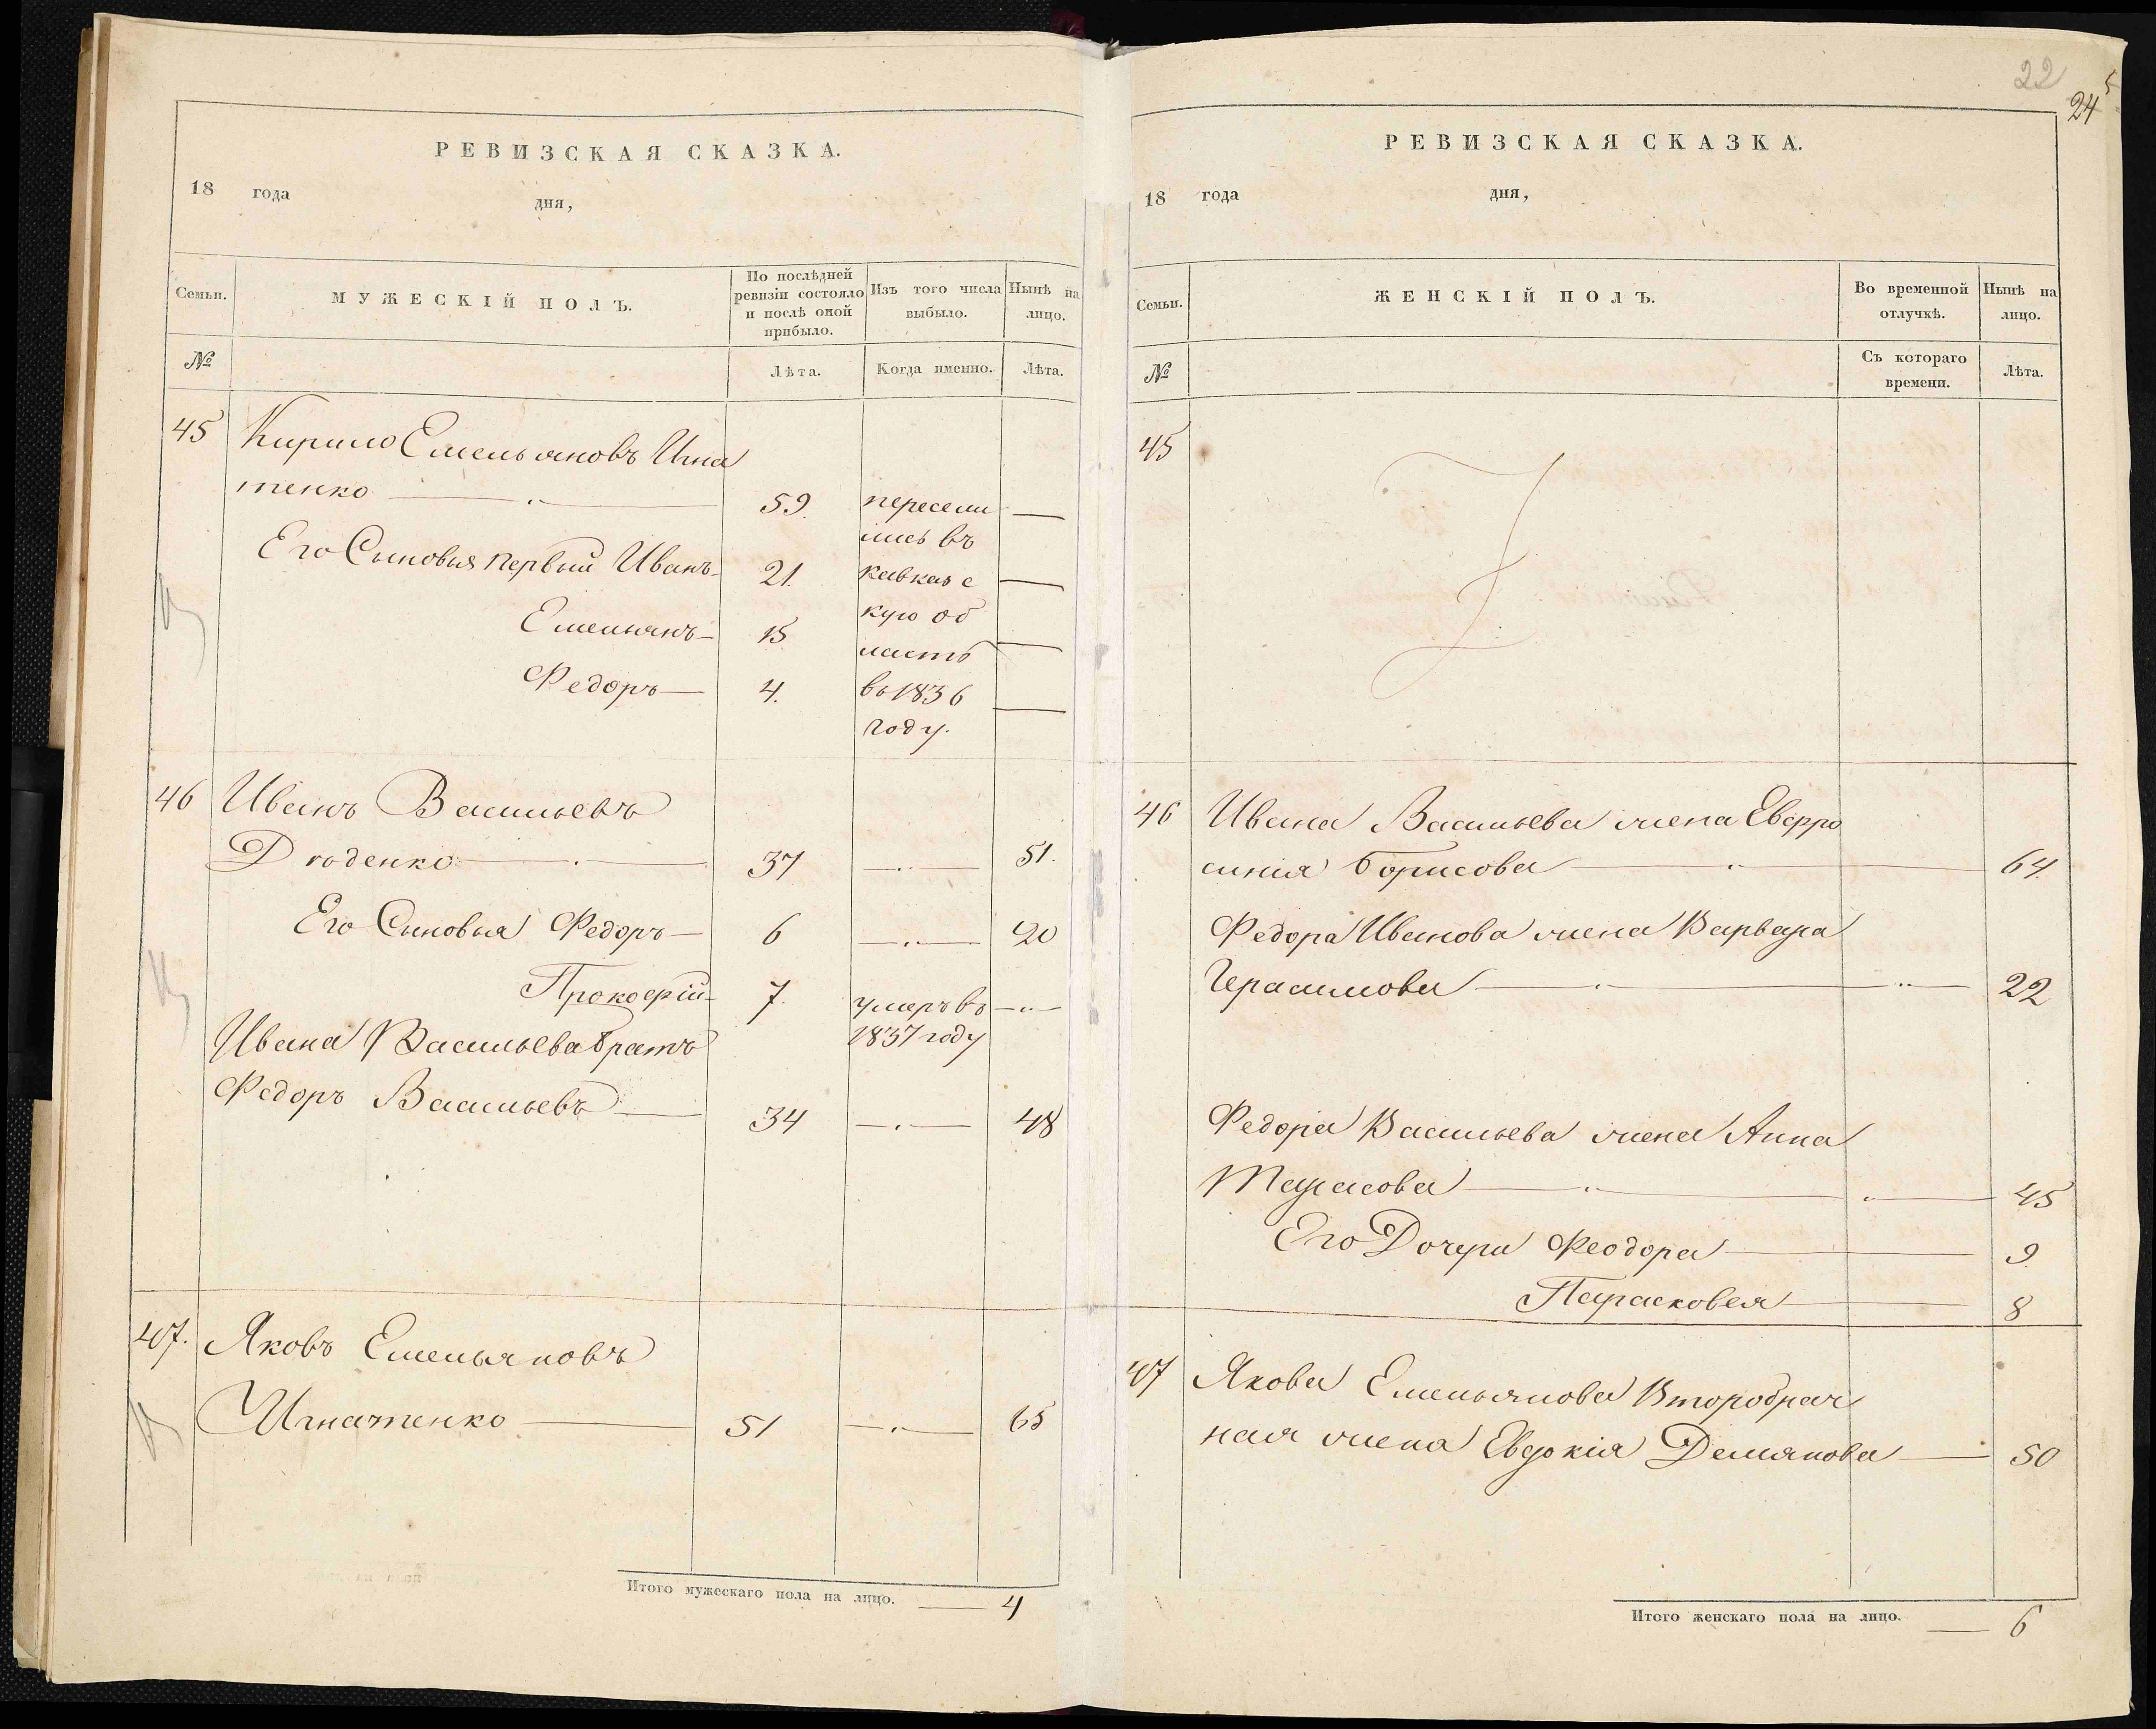 22
24
РЕВИЗСКАЯ СКАЗКА.
18 года дня,
Семьи.
МУЖЕСКІЙ ПОЛЪ.
По послѣдней
ревизіи состояло
и послѣ оной
прибыло.
Изъ того числа
выбыло.
Нынѣ на
лицо.
№
Лѣта.
Когда именно.
Лѣта.
45 Кирило Емельяновъ Игна
тенко — 59. пересели —
лись въ
Его Сыновья первый Иванъ — 21. кавказс —
кую об
Емельянъ — 15. ласть —
Федоръ — 4. въ 1836 —
году.
46 Иванъ Васильевъ
37 — 51.
Его Сыновья Федоръ — 6 — 20
Прокофій — 7. умеръ въ —
1837 году
Ивана Васильева братъ
Федоръ Васильевъ — 34 — 48
47. Яковъ Емельяновъ
Игнатенко — 51 — 65
Итого мужескаго пола на лицо. — 4
РЕВИЗСКАЯ СКАЗКА.
18 года дня,
Семьи.
ЖЕНСКІЙ ПОЛЪ.
Во временной
отлучкѣ.
Нынѣ на
лицо.
№
Съ котораго
времени.
Лѣта.
45
46 Ивана Васильева жена Евфро
синія Борисова — 64.
Федора Иванова жена Варвара
Герасимова — 22
Федора Васильева жена Анна
Тарасова — 45
Его Дочери Феодора — 9.
Парасковея — 8
47 Якова Емельянова Второбрач
ная жена Евдокія Демянова — 50
Итого женскаго пола на лицо. — 6